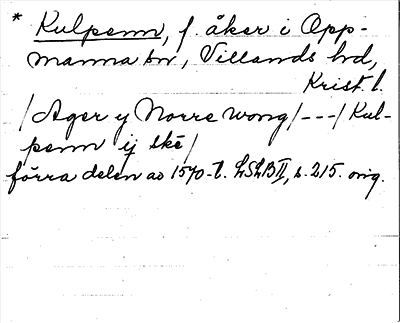 * Kulpenn, f. åker i Opp-
manna sn, Villands hd,
Krist. l.
/Ager y Norre wong/---/Kul-
penn ij ske/
förra delen av 1570-t. LSLB II, s. 215. orig.